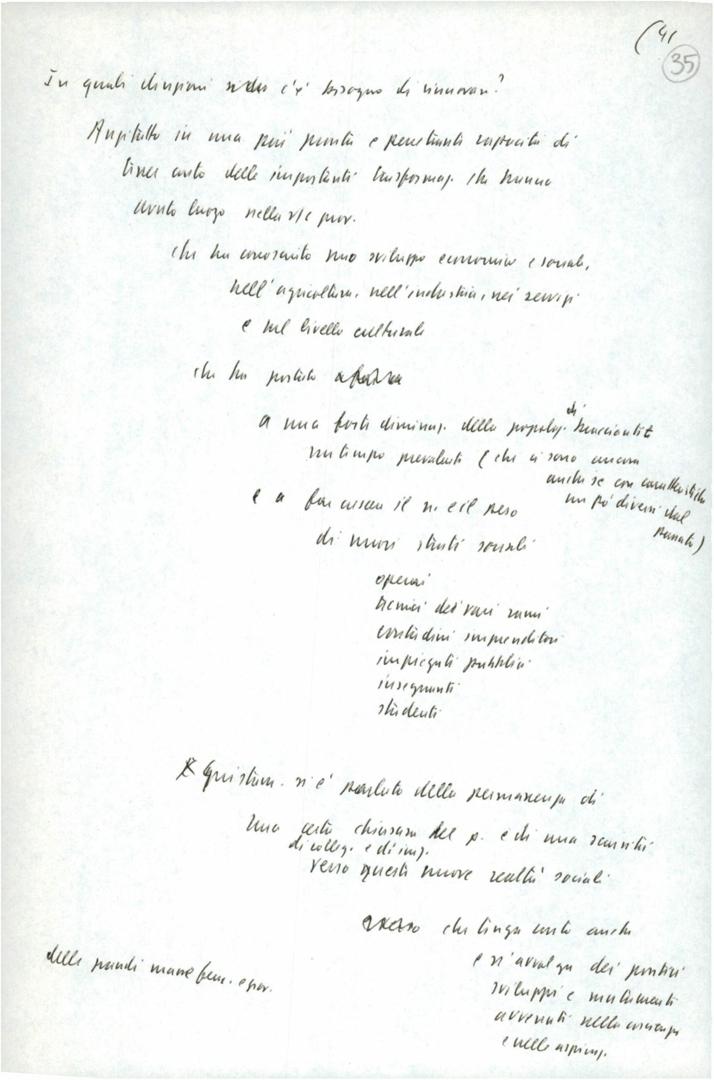 (41
35
In quali direzioni c'è bisogno di rinnovarsi?
Anzitutto in una più pronta e penetrante capacità di
tener conto delle importanti trasformaz. che hanno
avuto luogo nella prov.
che ha conosciuto uno sviluppo economico e sociale,
nell'agricoltura, nell'industria, nei servizi
e nel livello culturale
che ha portato
a una forte diminuz. della popolaz. di braccianti
un tempo prevalenti (che ci sono ancora
anche se con caratteristiche
un pò diversi dal
passato)
e a far crescere il n. e il peso
di nuovi strati sociali
operai
tecnici dei vari rami
contadini imprenditori
impiegati pubblici
insegnanti
studenti
Giustam. si è parlato della permanenza di
una certa chiusura del p. e di una scarsità
di colleg. e di iniz.
verso queste nuove realtà sociali
che tenga conto anche
e si avvalga dei positivi
sviluppi e mutamenti
avvenuti nella coscienza
e nelle aspiraz.
delle grandi masse femm. e giov.